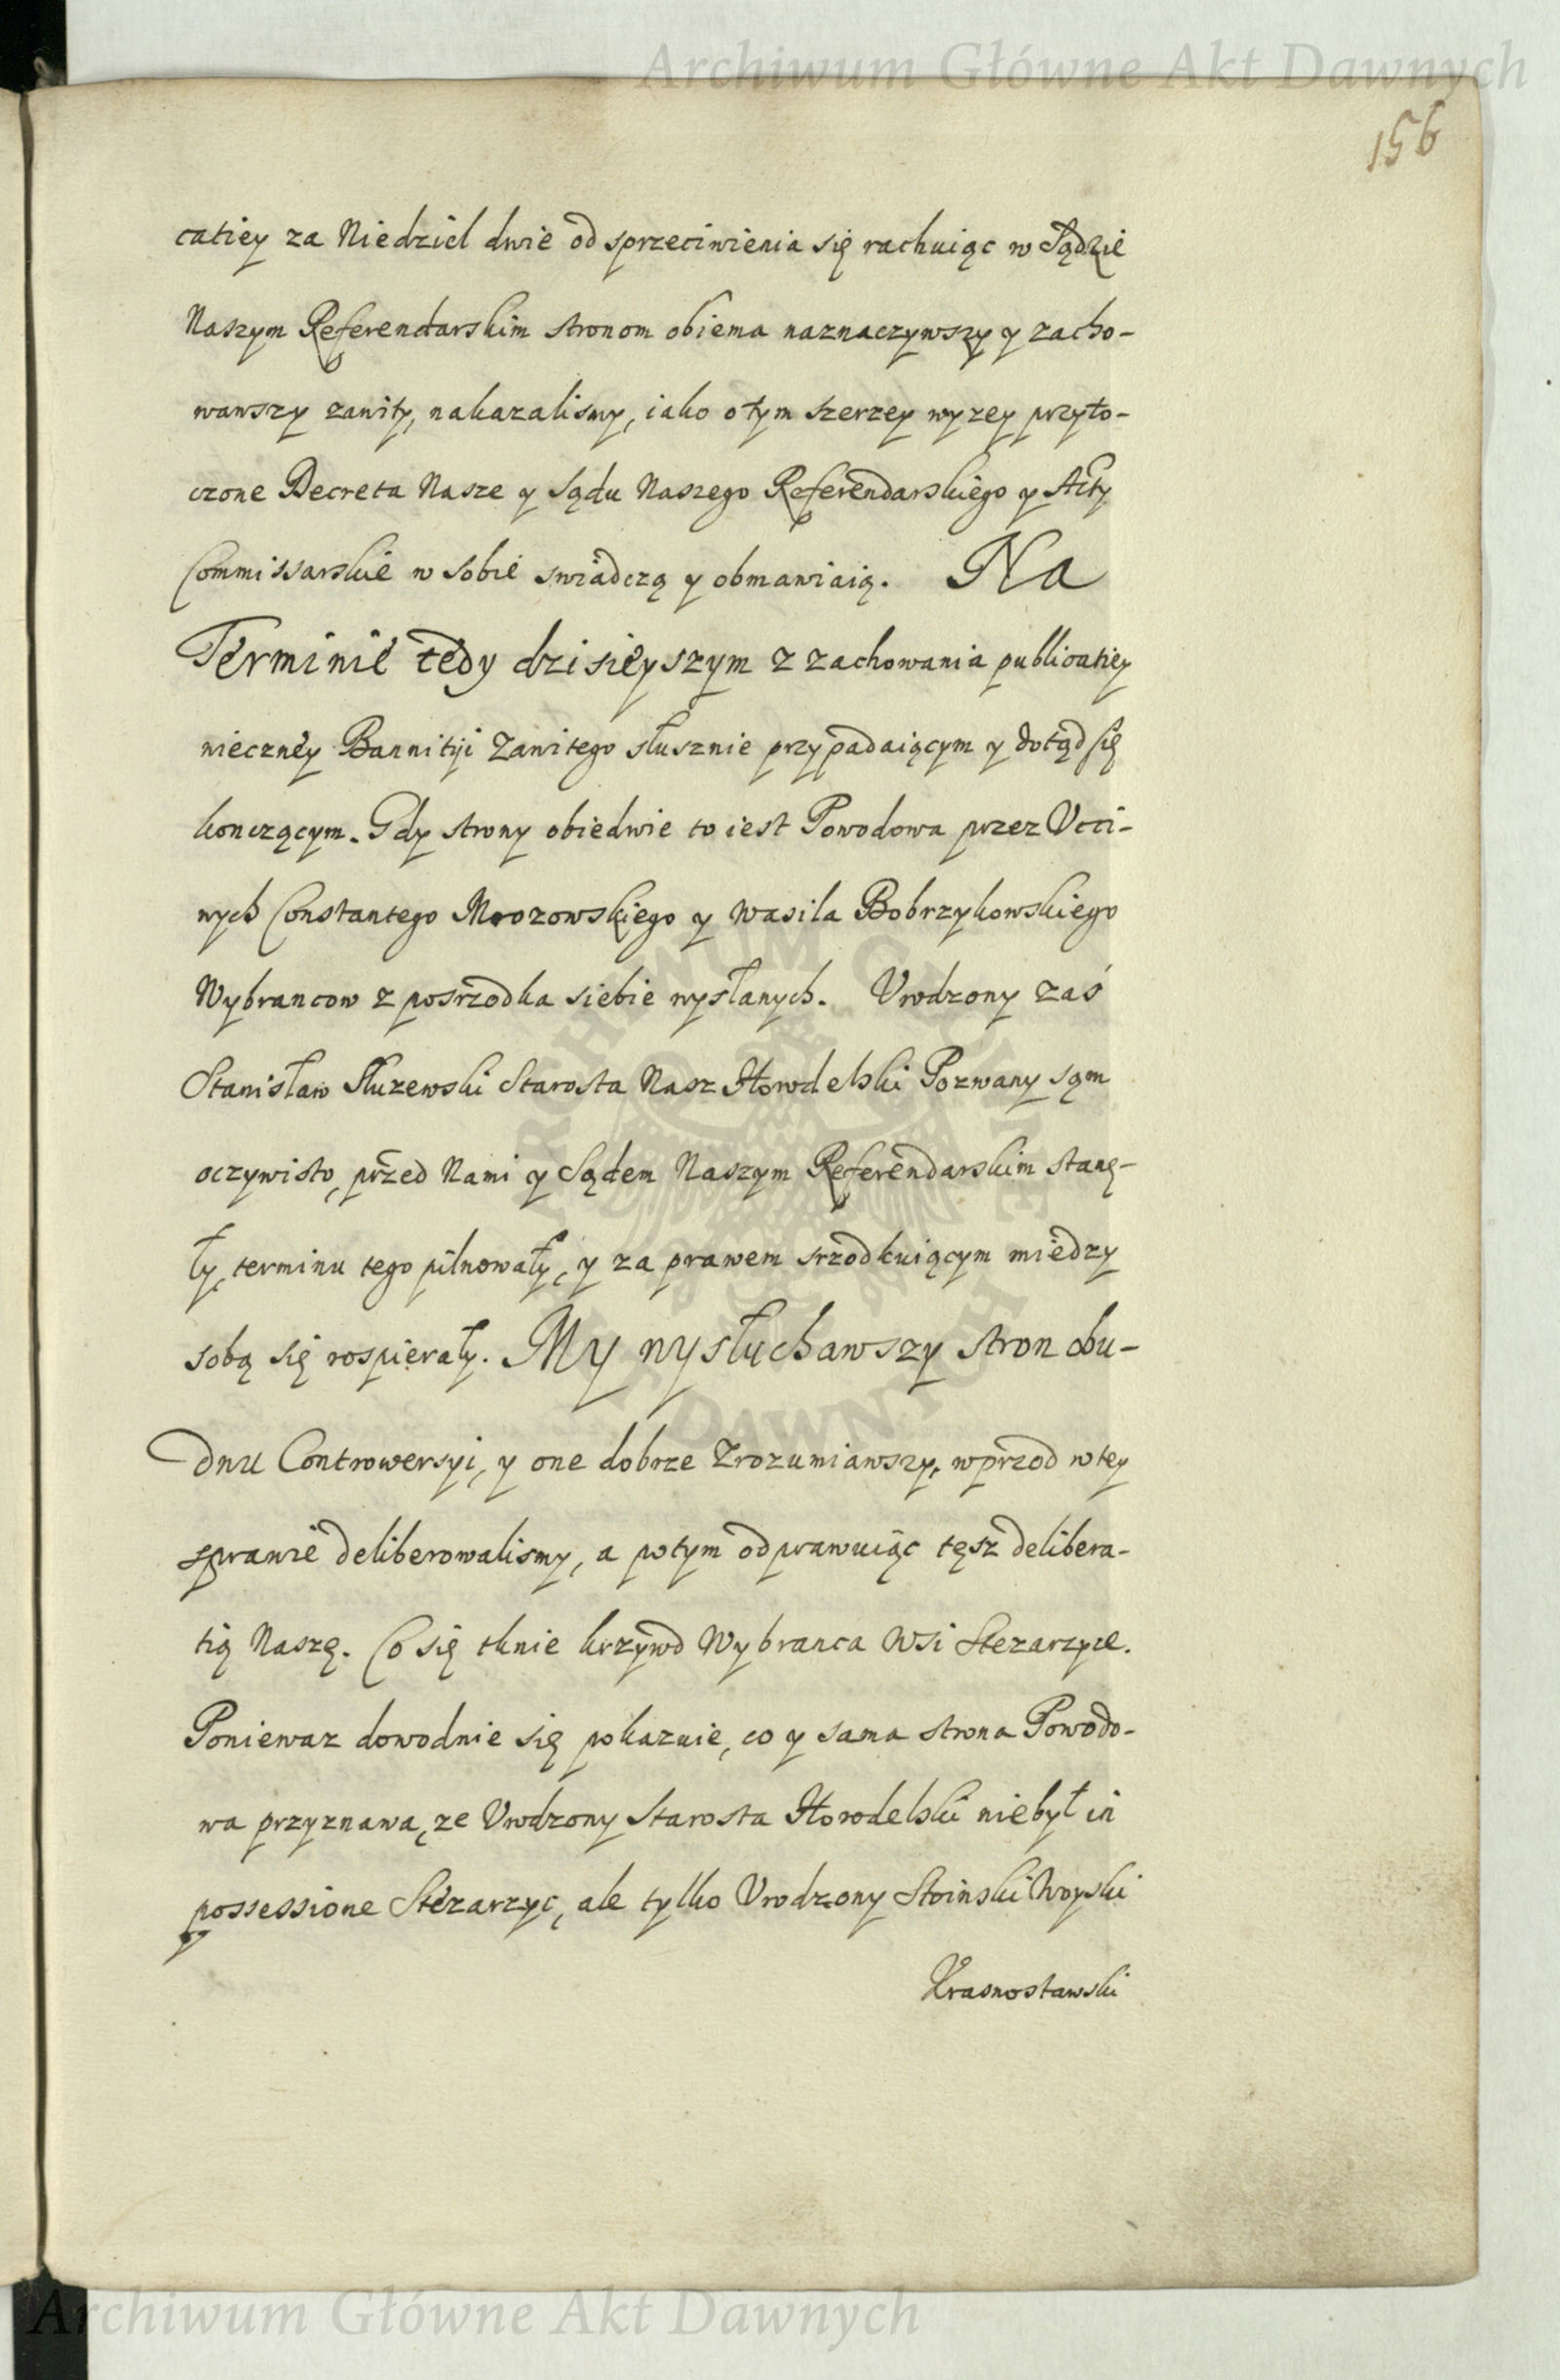 Archiwum Główne Akt Dawnych
156
catiey za Niedziel dwie od sprzeciwienia się rachuiąc w Sądzie
Naszym Referendarskim stronom obiema naznaczywszy y zacho-
wawszy zawity, nakazalismy, iako otym szerzey wyzey przyto-
czone Decreta Nasze y Sądu Naszego Referendarskiego y Akty
Commissarskie w sobie swiadczą y obmawiaią. Na
Terminie tedy dzisieyszym z zachowania publicatiey
wieczney Bannityi Zawitego słusznie przypadaiącym y dotąd się
konczącym. Gdy strony obiedwie to iest Powodowa przez Ucci-
wych Constantego Mrozowskiego y Wasila Bobrzykowskiego
Wybrancow z posrzodka siebie wysłanych. Urodzony zaś
Stanisław Służewski Starosta Nasz Horodelski Pozwany sąm
oczywisto, przed Nami y Sądem Naszym Referendarskim stanę-
ły, terminu tego pilnowały, y za prawem srzodkuiącym miedzy
sobą się rospierały. My wysłuchawszy stron obu-
dwu Controwersyi, y one dobrze Zrozumiawszy, wprzod w tey
sprawie deliberowalismy, a potym odprawuiąc tęsz delibera-
tią Naszę. Co się tknie krzywd Wybranca Wsi Stezarzyce.
Poniewaz dowodnie się pokazuie, co y sama strona Powodo-
wa przyznawa, ze Urodzony Starosta Horodelski niebył in
possessione Stezarzyc, ale tylko Urodzony Stoinski Woyski
Krasnostawski
Archiwum Główne Akt Dawnych